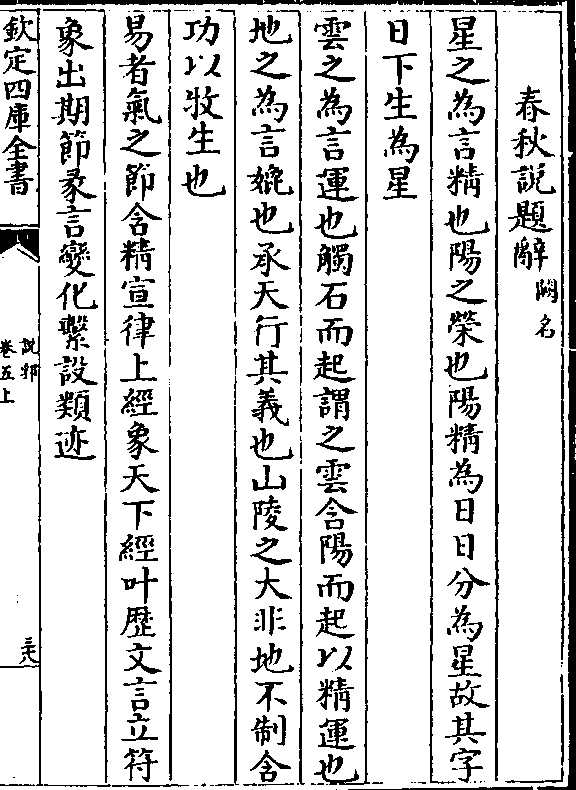 春秋說題辭闕名
星之為言精也陽之榮也陽精為日日分為星故其字
日下生為星
雲之為言運也觸石而起謂之雲含陽而起以精運也
地之為言媲也承天行其義也山陵之大非地不制含
功以牧生也
易者氣之節含精宣律上經象天下經叶歷文言立符
象出期節彖言變化繫設類迹
欽定四庫全書
說郛
卷五上
三十八